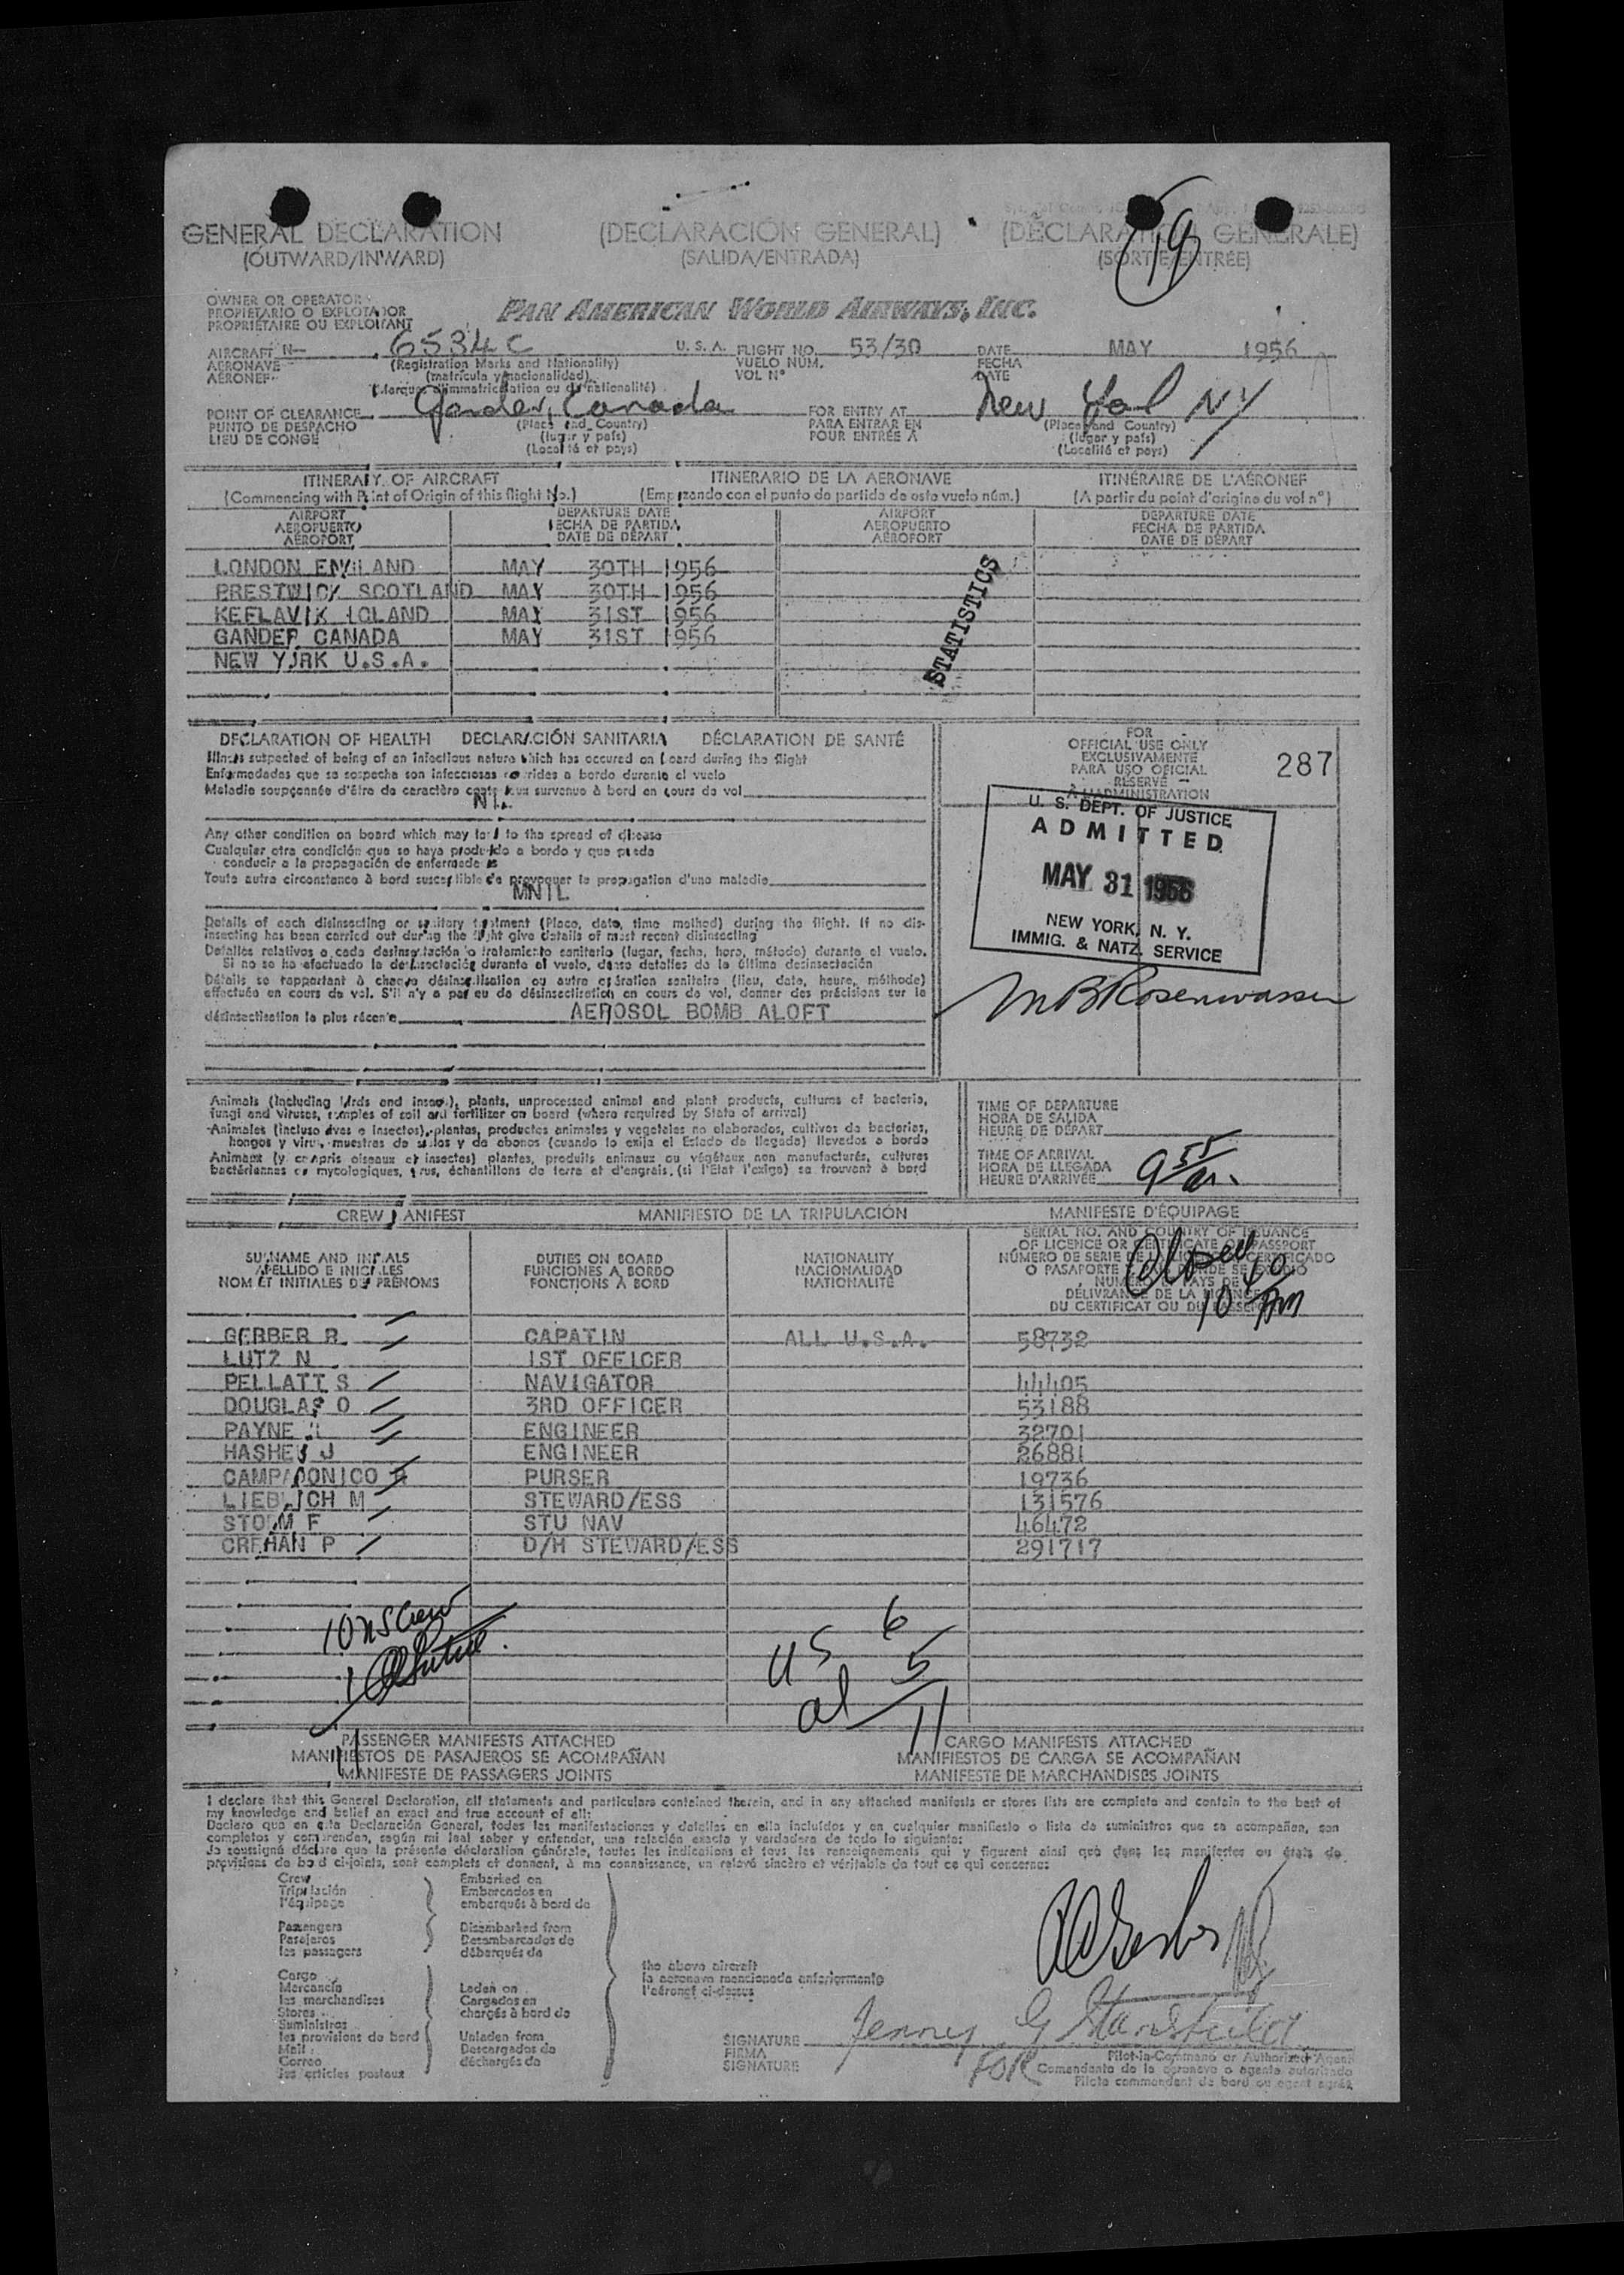 GENERAL DECLARATION (DECLARACIÓN GENERAL) (DÉCLARATION GENERALE)
(OUTWARD/INWARD) (SALIDA/ENTRADA) (SORTIE/ENTRÉE)
19
OWNER OR OPERATOR
PROPIETARIO O EXPLOTADOR
PROPRIÉTAIRE OU EXPLOITANT
PAN AMERICAN WORLD AIRWAYS, INC.
AIRCRAFT N- 6534C U.S.A. FLIGHT NO. 53/30 DATE MAY 1956
AERONAVE (Registration Marks and Nationality) VUELO NÚM. FECHA
AÉRONEF (matrícula y nacionalidad) VOL Nº DATE
(Marques d'immatriculation ou de nationalité)
POINT OF CLEARANCE Gander, Canada FOR ENTRY AT New York NY
PUNTO DE DESPACHO (Place and Country) PARA ENTRAR EN (Place and Country)
LIEU DE CONGÉ (lugar y país) POUR ENTRÉE À (lugar y país)
(Localité et pays) (Localité et pays)
ITINERARY OF AIRCRAFT ITINERARIO DE LA AERONAVE ITINÉRAIRE DE L'AÉRONEF
(Commencing with Point of Origin of this flight No.) (Empezando con el punto de partida de este vuelo núm.) (A partir du point d'origine du vol nº)
AIRPORT DEPARTURE DATE AIRPORT DEPARTURE DATE
AEROPUERTO FECHA DE PARTIDA AEROPUERTO FECHA DE PARTIDA
AÉROPORT DATE DE DÉPART AÉROPORT DATE DE DÉPART
LONDON ENGLAND MAY 30TH 1956
PRESTWICK SCOTLAND MAY 30TH 1956
KEFLAVIK ICLAND MAY 31ST 1956
GANDER CANADA MAY 31ST 1956
NEW YORK U.S.A.
STATISTICS
DECLARATION OF HEALTH DECLARACIÓN SANITARIA DÉCLARATION DE SANTÉ
Illness suspected of being of an infectious nature which has occured on board during the flight
Enfermedades que se sospecha son infecciosas ocurridas a bordo durante el vuelo
Maladie soupçonnée d'être de caractère contagieux survenue à bord en cours de vol
NIL
Any other condition on board which may lead to the spread of disease
Cualquier otra condición que se haya producido a bordo y que pueda
conducir a la propagación de enfermedades
Toute autre circonstance à bord susceptible de provoquer la propagation d'une maladie
MNIL
Details of each disinsecting or sanitary treatment (Place, date, time method) during the flight. If no dis-
insecting has been carried out during the flight give details of most recent disinsecting
Detalles relativos a cada desinsectación o tratamiento sanitario (lugar, fecha, hora, método) durante el vuelo.
Si no se ha efectuado la desinsectación durante el vuelo, dense detalles de la última desinsectación
Détails se rapportant à chaque désinsectisation ou autre opération sanitaire (lieu, date, heure, méthode)
effectuée en cours de vol. S'il n'y a pas eu de désinsectisation en cours de vol, donner des précisions sur la
désinsectisation la plus récente AEROSOL BOMB ALOFT
FOR
OFFICIAL USE ONLY
EXCLUSIVAMENTE
PARA USO OFICIAL
RÉSERVÉ
À L'ADMINISTRATION
287
U. S. DEPT. OF JUSTICE
ADMITTED
MAY 31 1956
NEW YORK, N. Y.
IMMIG. & NATZ. SERVICE
MBRosenwasser
Animals (including birds and insects), plants, unprocessed animal and plant products, cultures of bacteria,
fungi and viruses, samples of soil and fertilizer on board (where required by State of arrival)
Animales (incluso aves e insectos), plantas, productos animales y vegetales no elaborados, cultivos de bacterias,
hongos y virus, muestras de suelos y de abonos (cuando lo exija el Estado de llegada) llevados a bordo
Animaux (y compris oiseaux et insectes) plantes, produits animaux ou végétaux non manufacturés, cultures
bactériennes ou mycologiques, virus, échantillons de terre et d'engrais, (si l'État l'exige) se trouvant à bord
TIME OF DEPARTURE
HORA DE SALIDA
HEURE DE DÉPART
TIME OF ARRIVAL
HORA DE LLEGADA
HEURE D'ARRIVÉE 9 55
CREW MANIFEST MANIFIESTO DE LA TRIPULACIÓN MANIFESTE D'ÉQUIPAGE
SURNAME AND INITIALS DUTIES ON BOARD NATIONALITY SERIAL NO. AND COUNTRY OF ISSUANCE
APELLIDO E INICIALES FUNCIONES A BORDO NACIONALIDAD OF LICENCE OR CERTIFICATE OR PASSPORT
NOM ET INITIALES DE PRÉNOMS FONCTIONS À BORD NATIONALITÉ NÚMERO DE SERIE DE LA LICENCIA CERTIFICADO
O PASAPORTE DONDE SE EXPIDIÓ
NUMÉRO PAYS DE
DÉLIVRANCE DE LA LICENCE
DU CERTIFICAT OU DU PASSEPORT
10 40 AM
GERBER R. CAPATIN ALL U.S.A. 58732
LUTZ N 1ST OFFICER
PELLATT S NAVIGATOR 44405
DOUGLAS O 3RD OFFICER 53188
PAYNE ENGINEER 32701
HASHEY J ENGINEER 26881
CAMPAGONICO PURSER 19736
LIEBLICH M STEWARD/ESS 131576
STORM F STU NAV 46472
CREHAN P D/H STEWARD/ESS 291717
10 US Crew
1
11
US 6
al 5
11
PASSENGER MANIFESTS ATTACHED CARGO MANIFESTS ATTACHED
MANIFIESTOS DE PASAJEROS SE ACOMPAÑAN MANIFIESTOS DE CARGA SE ACOMPAÑAN
MANIFESTE DE PASSAGERS JOINTS MANIFESTE DE MARCHANDISES JOINTS
I declare that this General Declaration, all statements and particulars contained therein, and in any attached manifests or stores lists are complete and contain to the best of
my knowledge and belief an exact and true account of all:
Declaro que en esta Declaración General, todas las manifestaciones y detalles en ella incluídos y en cualquier manifiesto o lista de suministros que se acompañen, son
completos y comprenden, según mi leal saber y entender, una relación exacta y verdadera de todo lo siguiente:
Je soussigné déclare que la présente déclaration générale, toutes les indications et tous les renseignements qui y figurent ainsi que dans les manifestes ou états de
provisions de bord ci-joints, sont complets et donnent, à ma connaissance, un relevé sincère et véritable de tout ce qui concerne:
Crew Embarked on
Tripulación Embarcados en
l'équipage embarqués à bord de
Passengers Disembarked from
Pasajeros Desembarcados de
les passagers débarqués de
Cargo
Mercancía Laden on
les marchandises Cargados en
Stores chargés à bord de
Suministros
les provisions de bord Unladen from
Mail Descargados de
Correo déchargés de
les articles postaux
the above aircraft
la aeronave mencionada anteriormente
l'aéronef ci-dessus
RCGerber
SIGNATURE
FIRMA
SIGNATURE
FOR
Pilot-in-Command or Authorized Agent
Comandante de la aeronave o agente autorizado
Pilote commandant de bord ou agent agréé